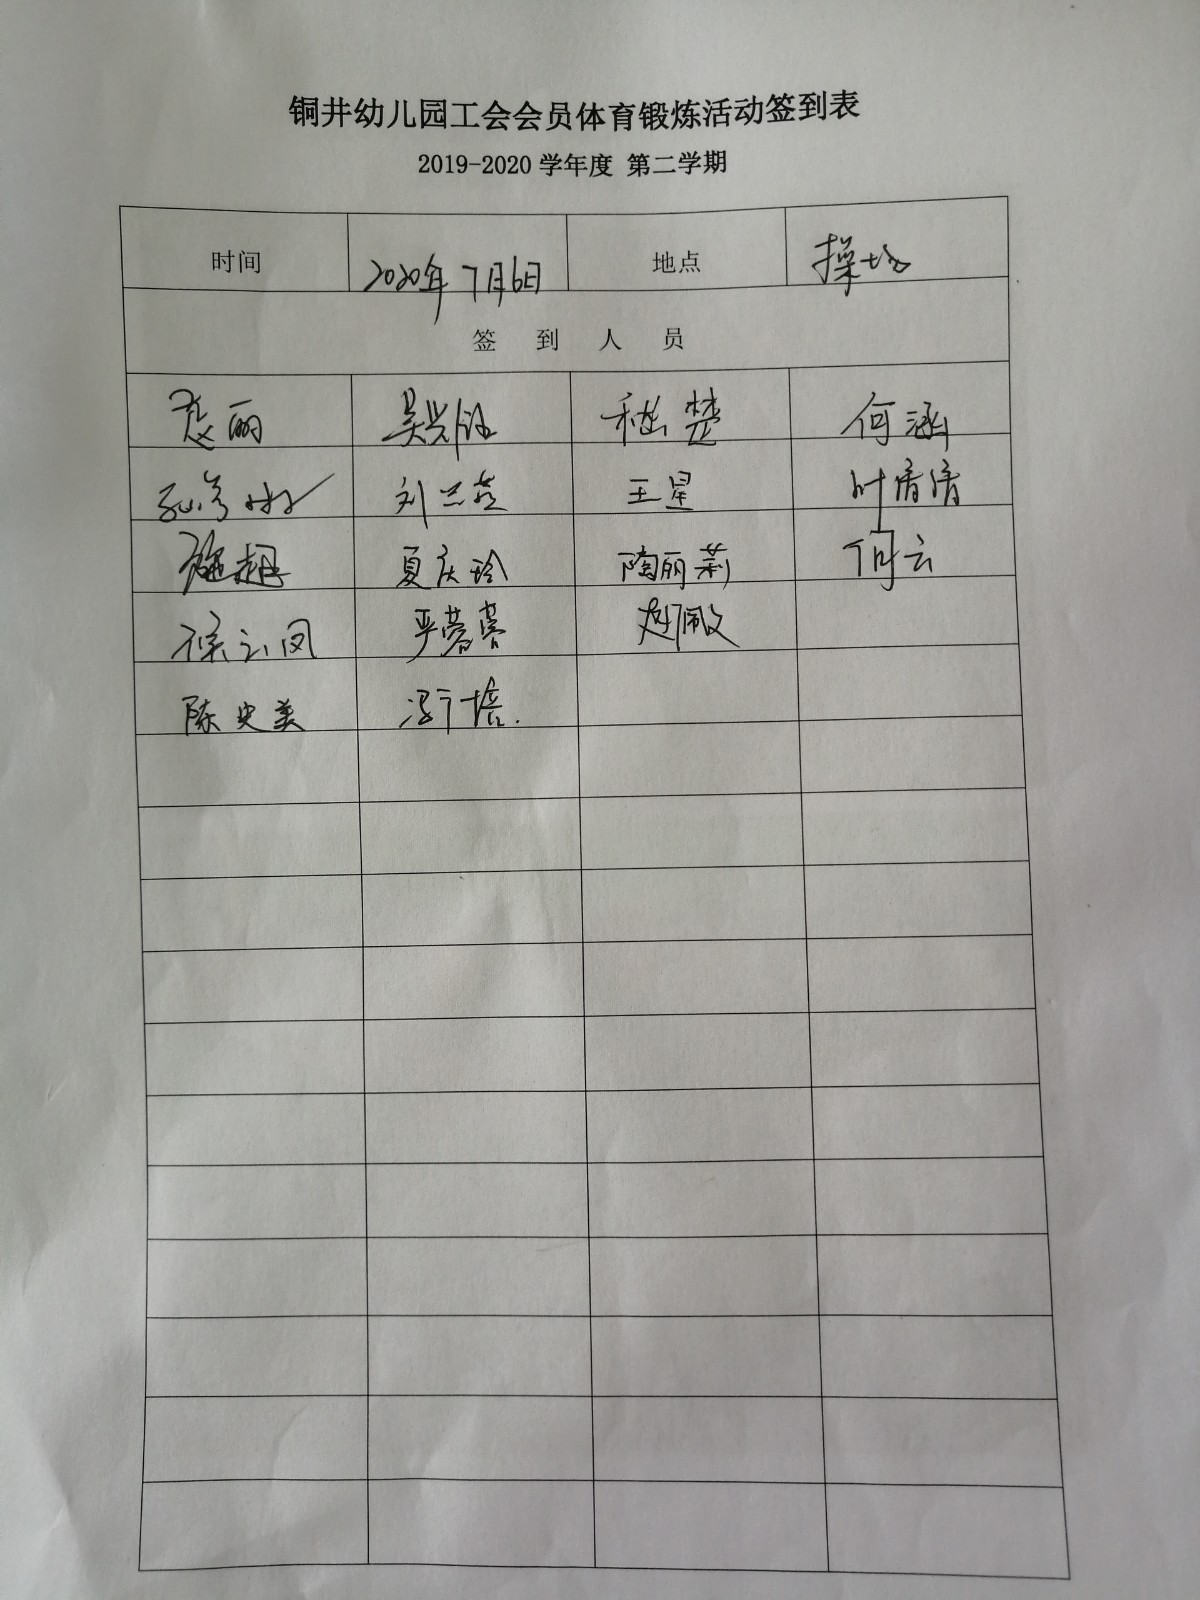 铜井幼儿园工会会员体育锻炼活动签到表
2019-2020 学年度 第二学期
时间 2020年7月6日 地点 操场
签 到 人 员
何涵
刘兰燕 王星 叶倩倩
施超 夏庆玲 陶丽莉 何云
徐云凤 严蓉蓉 赵佩文
陈史美 冯广培.